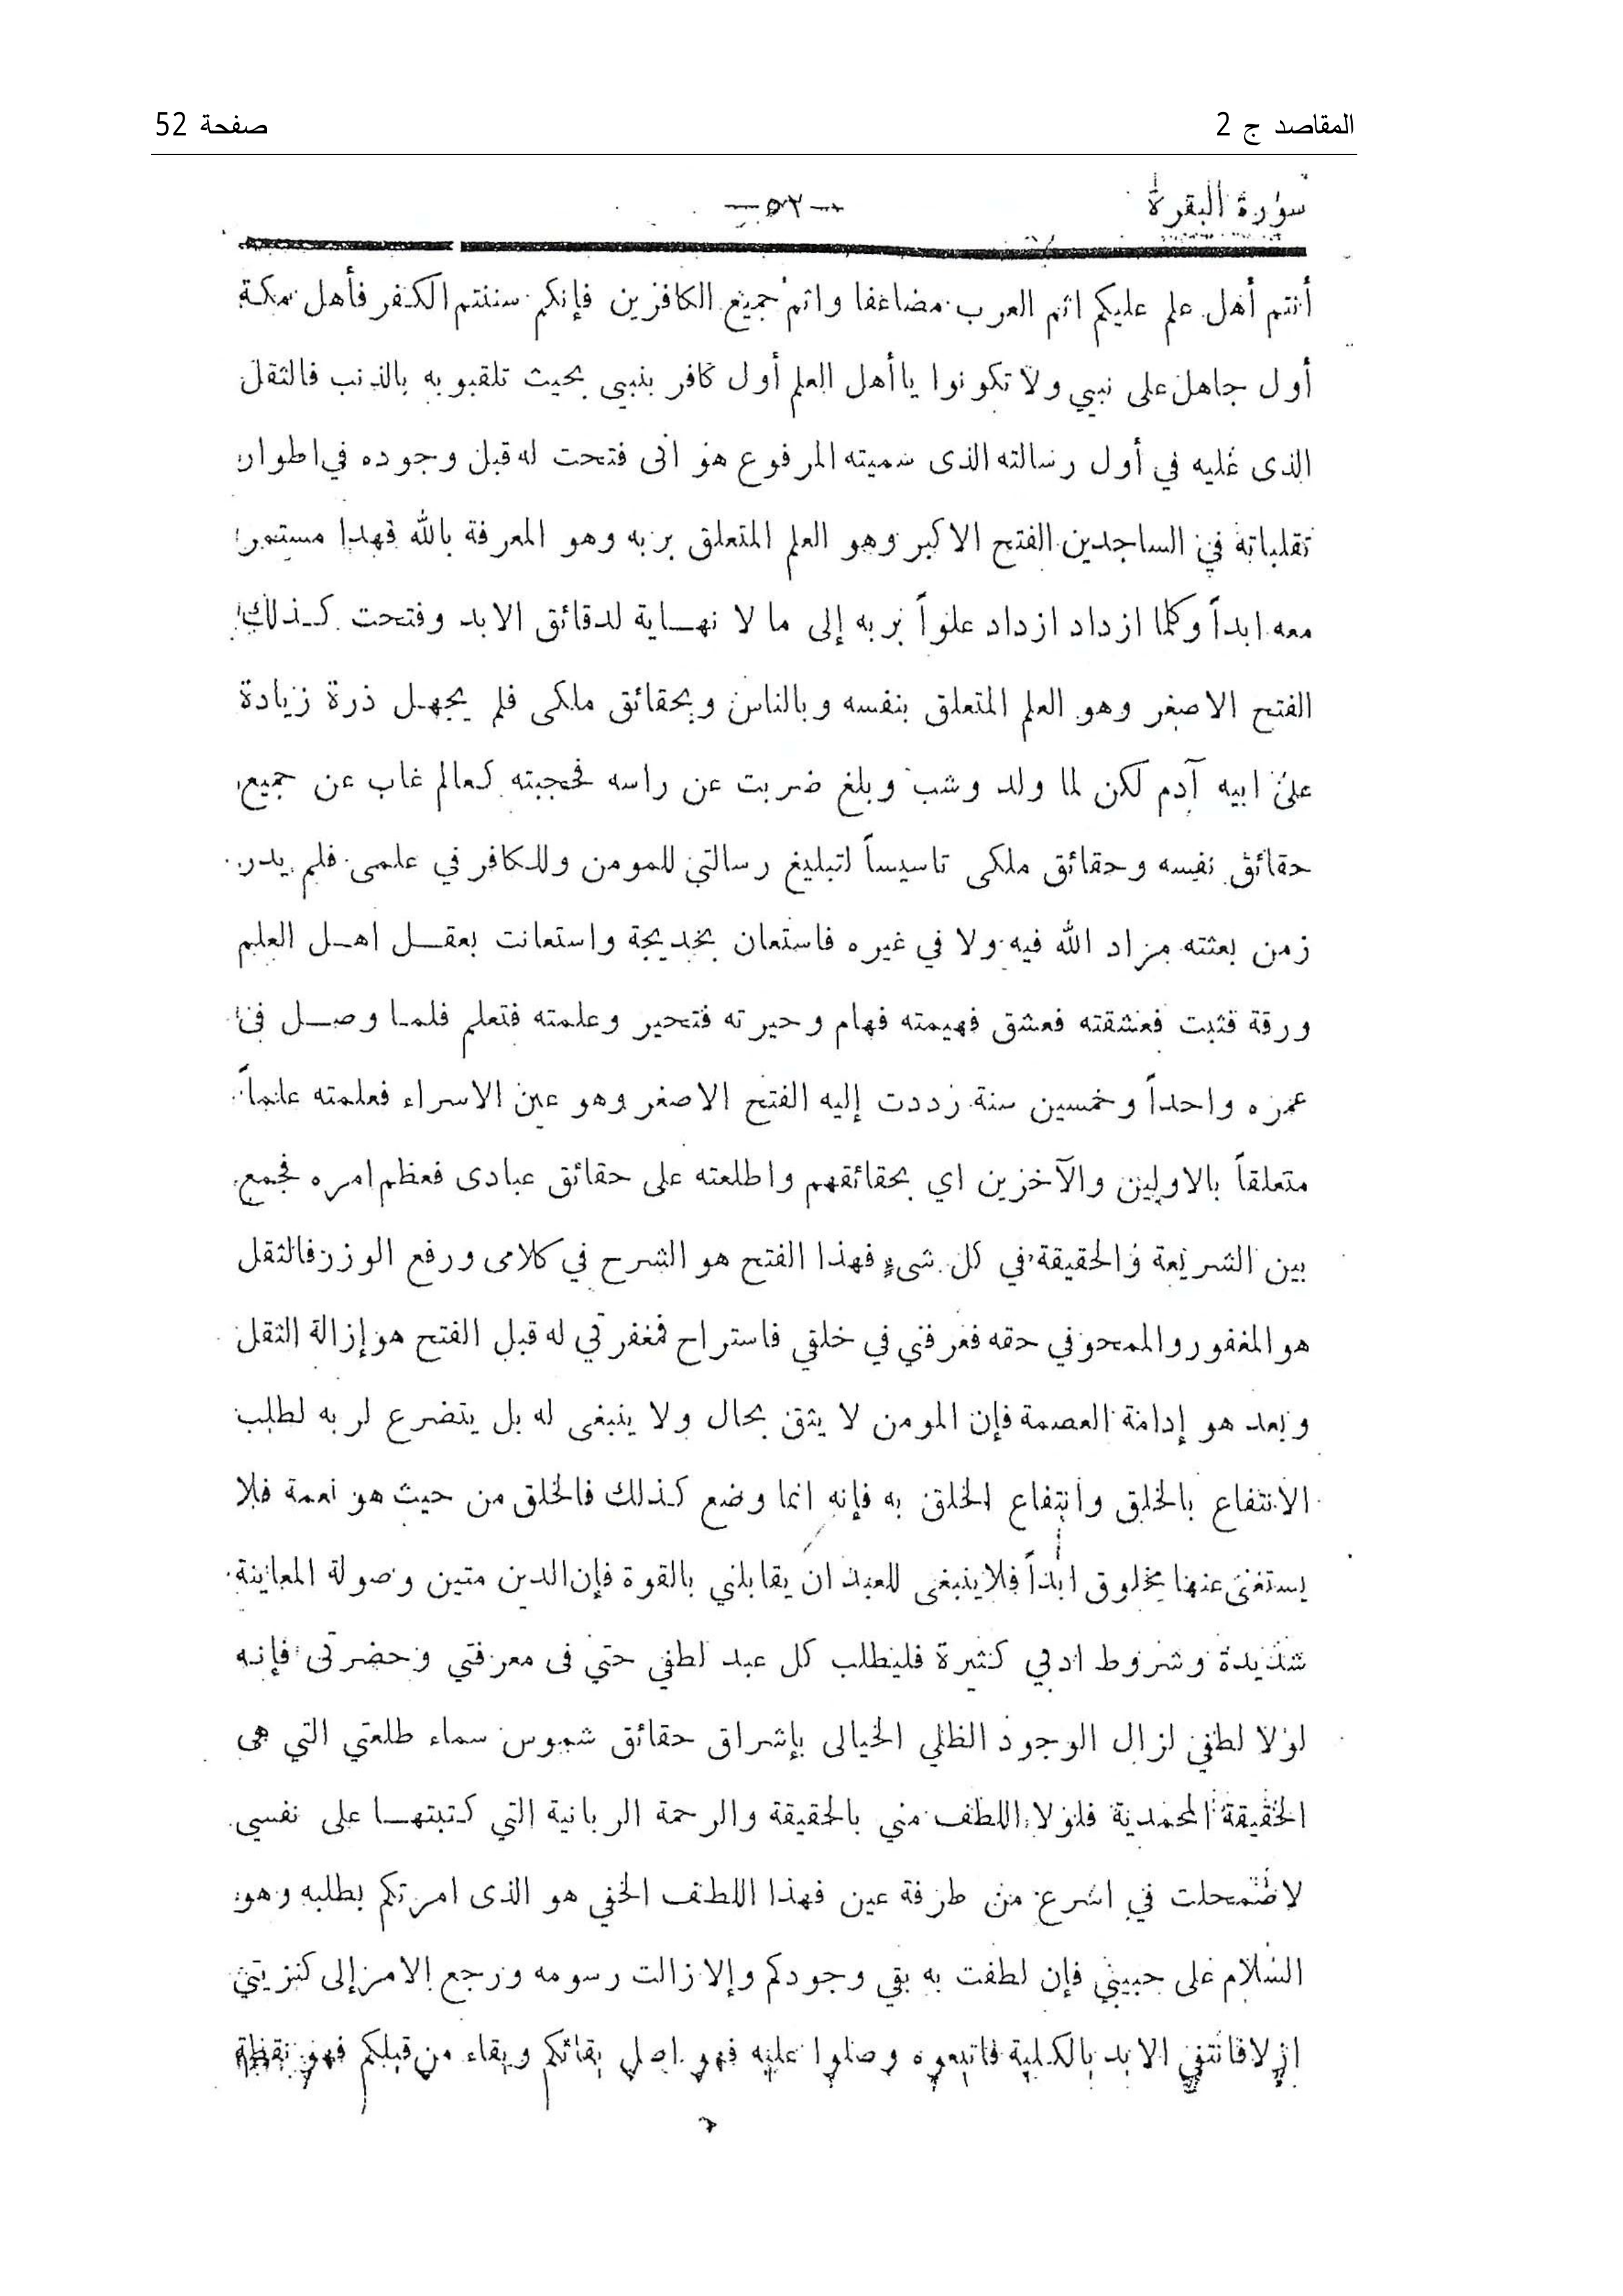 المقاصد ج 2
صفحة 52
سورة البقرة
— ٥٢ —
أنتم أهل علم عليكم اثم العرب مضاعفا واثم جميع الكافرين فإنكم سننتم الكفر فأهل مكة
أول جاهل على نبي ولا تكونوا ياأهل العلم أول كافر بنبى بحيث تلقبوبه بالذنب فالثقل
الذى عليه في أول رسالته الذى سميته المرفوع هو انى فتحت له قبل وجوده في اطوار
تقلباته في الساجدين الفتح الاكبر وهو العلم المتعلق بربه وهو المعرفة بالله فهدا مستمر
معه ابداً وكلما ازداد ازداد علواً بربه إلى ما لا نهاية لدقائق الابد وفتحت كذلك
الفتح الاصغر وهو العلم المتعلق بنفسه وبالناس وبحقائق ملكى فلم يجهل ذرة زيادة
على ابيه آدم لكن لما ولد وشب وبلغ ضربت عن راسه فحجبته كعالم غاب عن جميع
حقائق نفسه وحقائق ملكى تاسيساً لتبليغ رسالتي للمومن وللكافر في علمى فلم يدر
زمن بعثته مراد الله فيه ولا في غيره فاستعان بخديجة واستعانت بعقل اهل العلم
ورقة فثبت فعشقته فعشق فهيمته فهام وحيرته فتحير وعلمته فتعلم فلما وصل فى
عمره واحداً وخمسين سنة رددت إليه الفتح الاصغر وهو عين الاسراء فعلمته علماً
متعلقاً بالاولين والآخرين اي بحقائقهم واطلعته على حقائق عبادى فعظم امره فجمع
بين الشريعة والحقيقة في كل شىء فهذا الفتح هو الشرح في كلامى ورفع الوزر فالثقل
هو المغفور والممحو في حقه فعرفني في خلقي فاستراح فمغفرتي له قبل الفتح هو إزالة الثقل
وبعد هو إدامة العصمة فإن المومن لا يثق بحال ولا ينبغى له بل يتضرع لربه لطلب
الانتفاع بالخلق وانتفاع الخلق به فإنه انما وضع كذلك فالخلق من حيث هو نعمة فلا
يستغنى عنها مخلوق ابداً فلا ينبغى للعبد ان يقابلني بالقوة فإن الدين متين وصولة المعاينة
شديدة وشروط ادبي كثيرة فليطلب كل عبد لطفي حتي فى معرفتي وحضرتى فإنه
لولا لطفي لزال الوجود الظلي الخيالى بإشراق حقائق شموس سماء طلعتي التي هى
الحقيقة المحمدية فلولا اللطف مني بالحقيقة والرحمة الربانية التي كتبتها على نفسي
لاضمحلت في اسرع من طرفة عين فهذا اللطف الخفي هو الذى امرتكم بطلبه وهو
السلام على حبيبي فإن لطفت به بقي وجودكم وإلا زالت رسومه ورجع الامر إلى كنزيتي
ازلا فانتفى الابد بالكلية فاتبعوه وصلوا عليه فهو اصل بقائكم وبقاء من قبلكم فهو نقطة